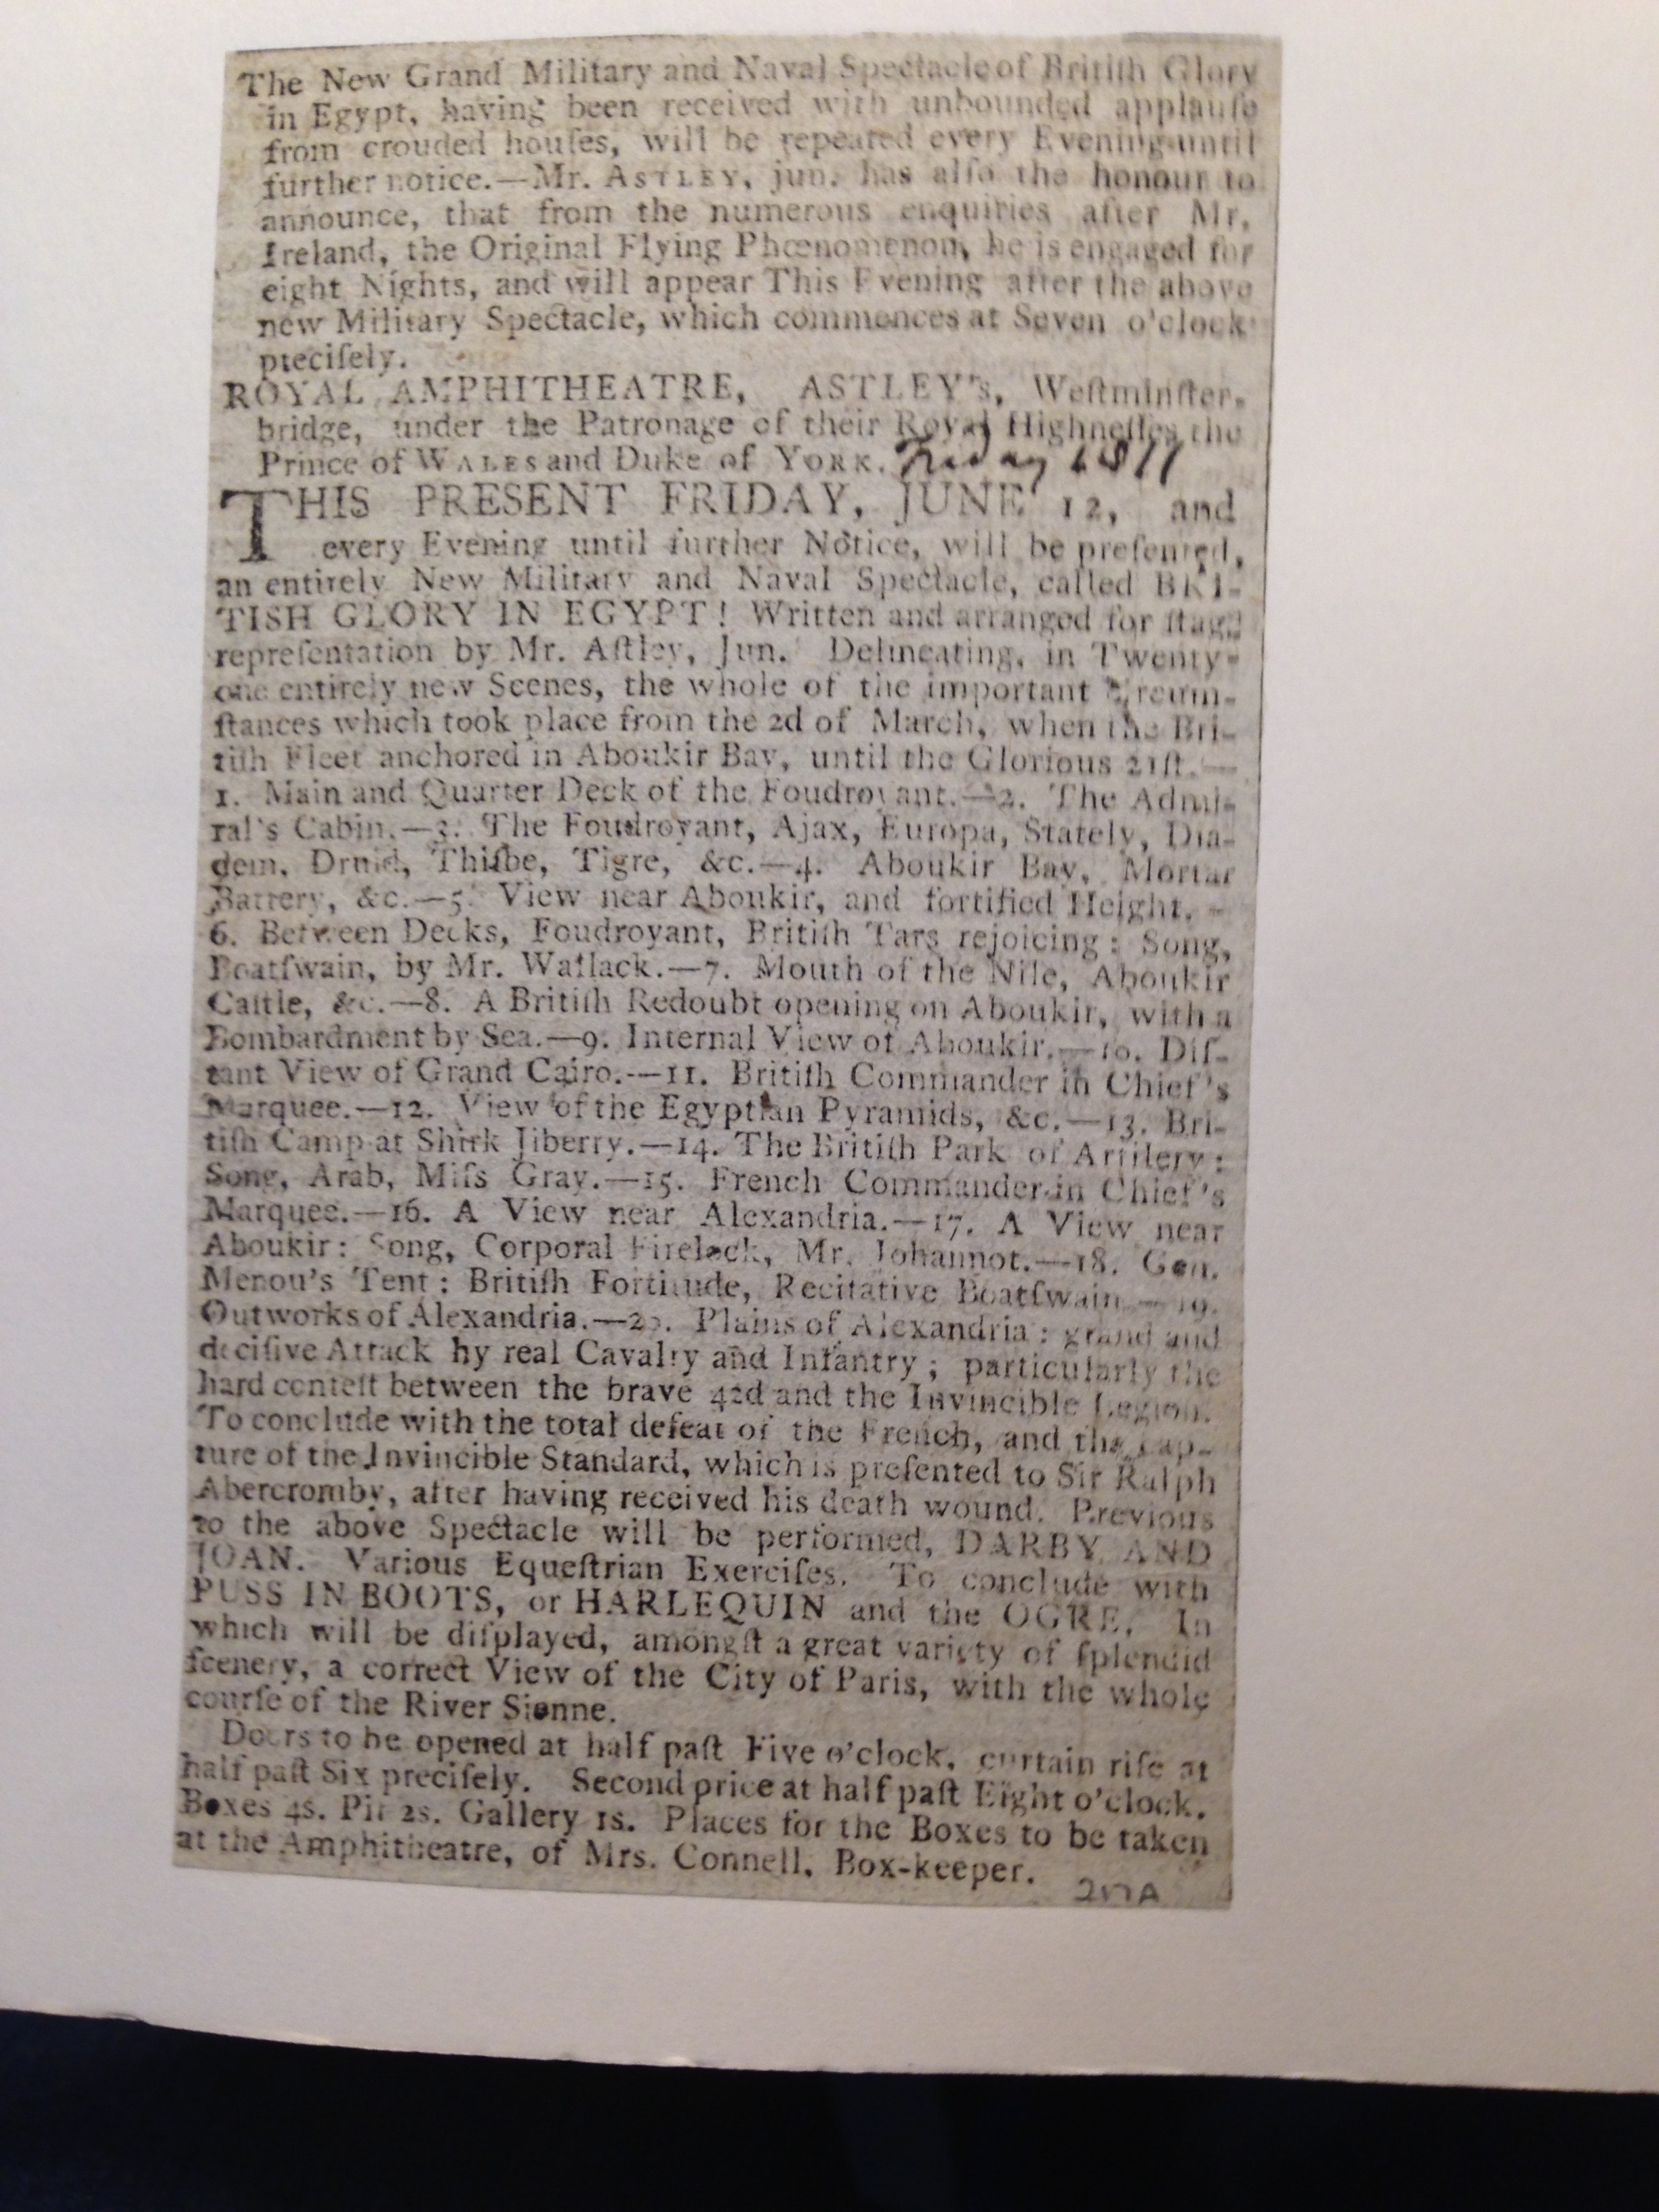 The New Grand Military and Naval Spectacle of Britiſh Glory
in Egypt, having been received with unbounded applauſe
from crouded houſes, will be repeated every Evening until
further notice.—Mr. ASTLEY, jun. has alſo the honour to
announce, that from the numerous enquiries after Mr.
Ireland, the Original Flying Phœnomenon, he is engaged for
eight Nights, and will appear This Evening after the above
new Military Spectacle, which commences at Seven o'clock
preciſely.
ROYAL AMPHITHEATRE, ASTLEY's, Weſtminſter-
bridge, under the Patronage of their Royal Highneſſes the
Prince of WALES and Duke of YORK. Friday
THIS PRESENT FRIDAY, JUNE 12, and
every Evening until further Notice, will be preſented,
an entirely New Military and Naval Spectacle, called BRI-
TISH GLORY IN EGYPT! Written and arranged for ſtage
repreſentation by Mr. Aſtley, Jun. Delineating, in Twenty-
one entirely new Scenes, the whole of the important circum-
ſtances which took place from the 2d of March, when the Bri-
tiſh Fleet anchored in Aboukir Bay, until the Glorious 21ſt.—
1. Main and Quarter Deck of the Foudroyant.—2. The Admi-
ral's Cabin.—3. The Foudroyant, Ajax, Europa, Stately, Dia-
dem, Druid, Thiſbe, Tigre, &c.—4. Aboukir Bay, Mortar
Battery, &c.—5. View near Aboukir, and fortified Height.—
6. Between Decks, Foudroyant, Britiſh Tars rejoicing: Song,
Boatſwain, by Mr. Wallack.—7. Mouth of the Nile, Aboukir
Caſtle, &c.—8. A Britiſh Redoubt opening on Aboukir, with a
Bombardment by Sea.—9. Internal View of Aboukir.—10. Diſ-
tant View of Grand Cairo.—11. Britiſh Commander in Chief's
Marquee.—12. View of the Egyptian Pyramids, &c.—13. Bri-
tiſh Camp at Shirk Jiberry.—14. The Britiſh Park of Artilery:
Song, Arab, Miſs Gray.—15. French Commander in Chief's
Marquee.—16. A View near Alexandria.—17. A View near
Aboukir: Song, Corporal Firelock, Mr. Johannot.—18. Gen.
Menou's Tent: Britiſh Fortitude, Recitative Boatſwain.—19.
Outworks of Alexandria.—20. Plains of Alexandria: grand and
deciſive Attack by real Cavalry and Infantry; particularly the
hard conteſt between the brave 42d and the Invincible Legion.
To conclude with the total defeat of the French, and the cap-
ture of the Invincible Standard, which is preſented to Sir Ralph
Abercromby, after having received his death wound. Previous
to the above Spectacle will be performed, DARBY AND
JOAN. Various Equeſtrian Exerciſes. To conclude with
PUSS IN BOOTS, or HARLEQUIN and the OGRE. In
which will be diſplayed, amongſt a great variety of ſplendid
ſcenery, a correct View of the City of Paris, with the whole
courſe of the River Sienne.
Doors to be opened at half paſt Five o'clock, curtain riſe at
half paſt Six preciſely. Second price at half paſt Eight o'clock.
Boxes 4s. Pit 2s. Gallery 1s. Places for the Boxes to be taken
at the Amphitheatre, of Mrs. Connell, Box-keeper.